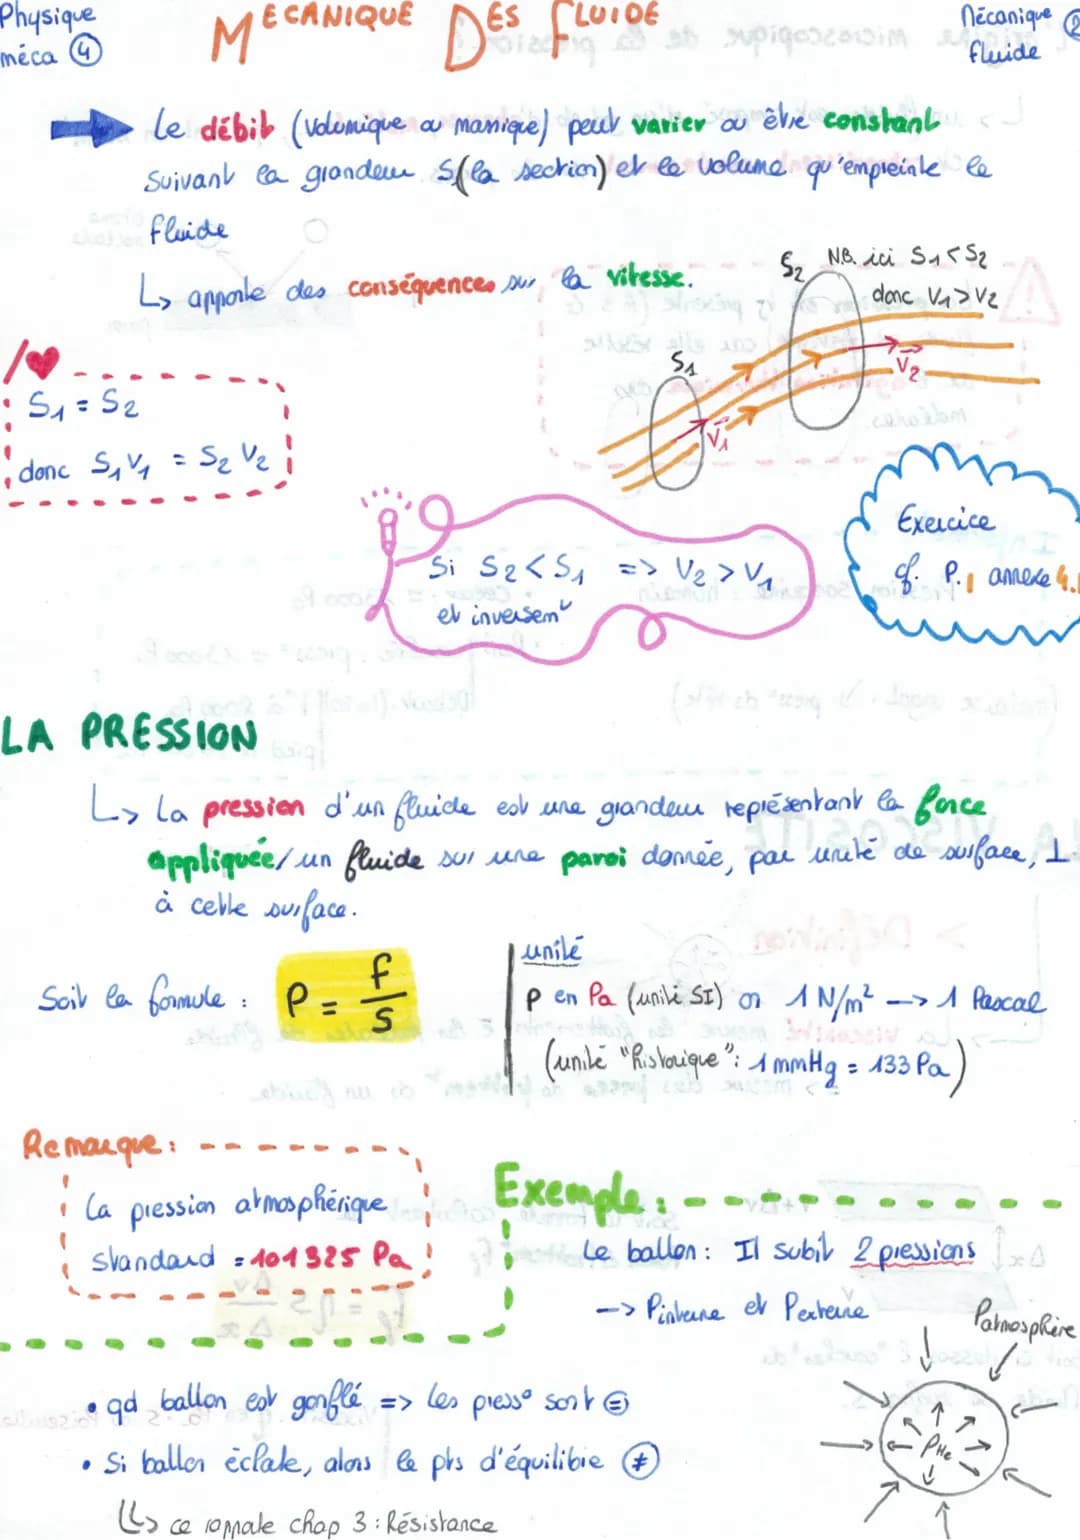 Physique
méca ④
MECANIQUE DES FLUIDE
Mécanique
fluide
Le débit (volumique ou massique) peut varier ou être constant
suivant la grandeur S (la section) et le volume qu'empreinte le
fluide
↳ apporte des conséquences sur la vitesse.
S2
N.B. ici S1 < S2
donc V1 > V2
S1
V2
V1
/♥
S1 = S2
donc S1 V1 = S2 V2
Si S2 < S1 => V2 > V1
et inversemt
Exercice
cf. P.1 annexe 4.
LA PRESSION
↳ La pression d'un fluide est une grandeur représentant la force
appliquée/un fluide sur une paroi donnée, par unité de surface, ⊥
à cette surface.
Soit la formule : P = f/S
unité
P en Pa (unité SI) or 1 N/m² --> 1 Pascal
(unité "historique" : 1 mmHg = 133 Pa)
Remarque :
La pression atmosphérique
standard = 101 325 Pa
Exemple :
Le ballon : Il subit 2 pressions
--> Pinterne et Pexterne
Patmosphère
• qd ballon est gonflé => les press° sont ⊜
• Si ballon èclate, alors le pts d'équilibre ≠
PHe
↳ ce rappale chap 3 : Résistance